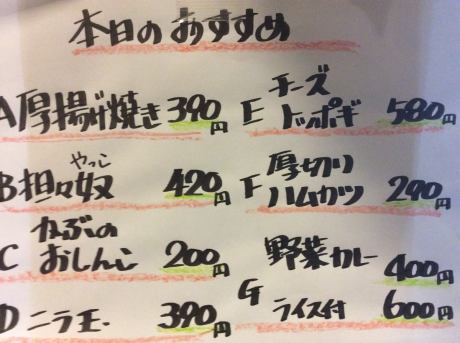 本日のおすすめ
A厚揚げ焼き 390円
やっこ
B担々奴 420円
かぶの
C おしんこ 200円
D ニラ玉 390円
チーズ
E トッポギ 580円
厚切り
F ハムカツ 290円
野菜カレー 400円
G ライス付 600円